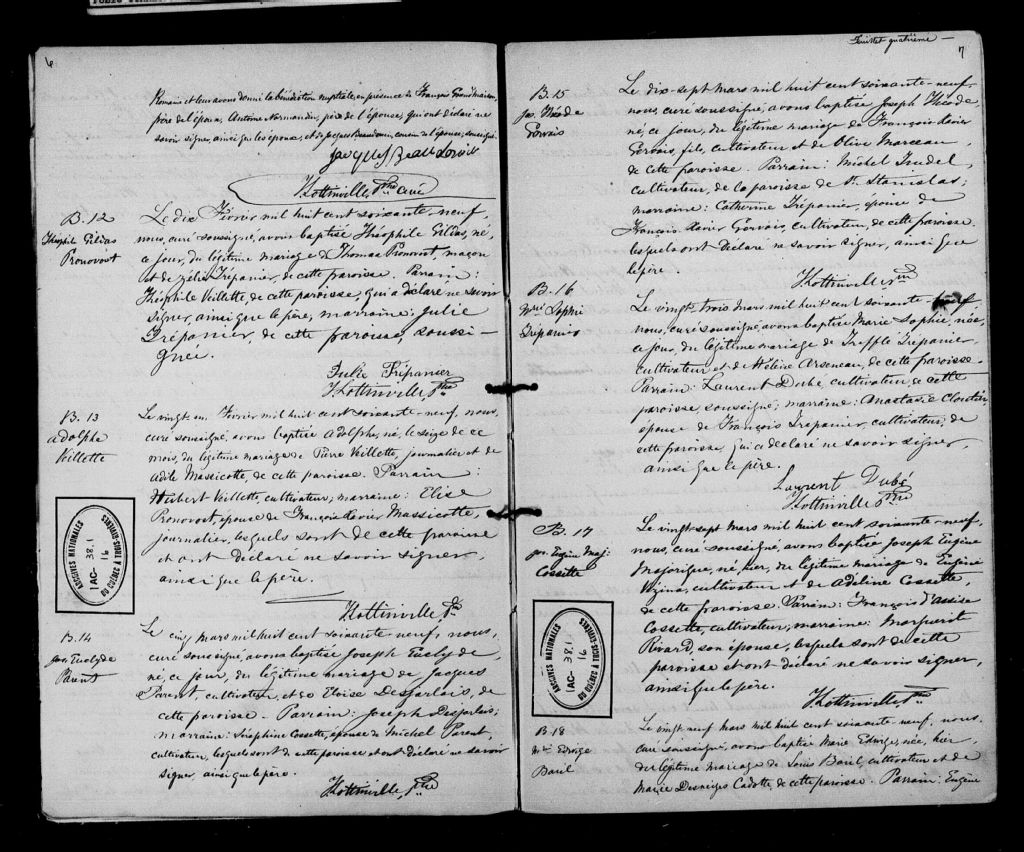 6
Romaine et leur avons donné la bénédiction nuptiale en présence de François
père de l'époux, Antoine Normandin, père de l'épouse, qui ont déclaré ne
savoir signer, ainsi que les époux, et de Jacques Beaudouin, cousin de l'épouse, soussigné.
Jacques Beaudouin
Hottinville, Ptre curé
B. 12
Théophile Gildas
Pronovost
Le dix Février mil huit cent soixante-neuf,
nous, curé soussigné, avons baptisé Théophile Gildas, né,
ce jour, du légitime mariage de Thomas Pronovost, maçon
et de Zélie Trépanier, de cette paroisse. Parrain:
Théophile Veillette, de cette paroisse, qui a déclaré ne savoir
signer, ainsi que le père; marraine: Julie
Trépanier, de cette paroisse, soussi-
gnée.
Julie Trépanier
Hottinville Ptre
B. 13
Adolphe
Veillette
Le vingt un Février mil huit cent soixante-neuf, nous,
curé soussigné, avons baptisé Adolphe, né, le seize de ce
mois, du légitime mariage de Pierre Veillette, journalier et de
Adèle Massicotte, de cette paroisse. Parrain:
Herbert Veillette, cultivateur; marraine: Elise
Pronovost, épouse de François Xavier Massicotte,
journalier, lesquels sont de cette paroisse
et ont déclaré ne savoir signer,
ainsi que le père.
Hottinville Ptre
ARCHIVES NATIONALES
1AC- 38.1
16
DU QUÉBEC À TROIS-RIVIÈRES
B. 14
Jos. Euclyde
Parent
Le cinq mars mil huit cent soixante neuf, nous,
curé soussigné, avons baptisé Joseph Euclyde,
né, ce jour, du légitime mariage de Jacques
Parent, cultivateur, et de Eloise Desjarlais, de
cette paroisse. Parrain: Joseph Desjarlais;
marraine: Séraphine Cossette, épouse de Michel Parent,
cultivateur, lesquels sont de cette paroisse et ont déclaré ne savoir
signer, ainsi que le père.
Hottinville, Ptre
Feuillet quatrième
7
B. 15
Jos. Théode
Gervais
Le dix-sept mars mil huit cent soixante-neuf,
nous, curé soussigné, avons baptisé Joseph Théode,
né, ce jour, du légitime mariage de François Xavier
Gervais, fils, cultivateur et de Olive Marceau,
de cette paroisse. Parrain: Michel Trudel,
cultivateur, de la paroisse de St. Stanislas;
marraine: Catherine Trépanier, épouse de
François Xavier Gervais, cultivateur, de cette paroisse
lesquels ont déclaré ne savoir signer, ainsi que
le père.
Hottinville Ptre
B. 16
Mrie Sophie
Trépanier
Le vingt-trois mars mil huit cent soixante-neuf
nous, curé soussigné, avons baptisé Marie Sophie, née,
ce jour, du légitime mariage de Treffle Trépanier,
cultivateur et de Héloïse Arseneau, de cette paroisse.
Parrain: Laurent Dubé, cultivateur, de cette
paroisse, soussigné; marraine: Anastasie Cloutier,
épouse de François Trépanier, cultivateur, de
cette paroisse, qui a déclaré ne savoir signer,
ainsi que le père.
Laurent Dubé
Hottinville Ptre
B. 17
Jos. Eugène Maj:
Cossette
Le vingt-sept mars mil huit cent soixante-neuf,
nous, curé soussigné, avons baptisé Joseph Eugène
Majorique, né, hier, du légitime mariage de Eugène
Vézina, cultivateur et de Adeline Cossette,
de cette paroisse. Parrain: François d'Assise
Cossette, cultivateur; marraine: Marguerit
Rivard, son épouse, lesquels sont de cette
paroisse et ont déclaré ne savoir signer,
ainsi que le père.
Hottinville Ptre
ARCHIVES NATIONALES
1AC- 38.1
16
DU QUÉBEC À TROIS-RIVIÈRES
B. 18
Mrie Edwige
Baril
Le vingt-neuf mars mil huit cent soixante-neuf, nous,
curé soussigné, avons baptisé Marie Edwige, née, hier,
du légitime mariage de Louis Baril cultivateur et de
Marie Desneiges Cadotte, de cette paroisse. Parrain: Eugène